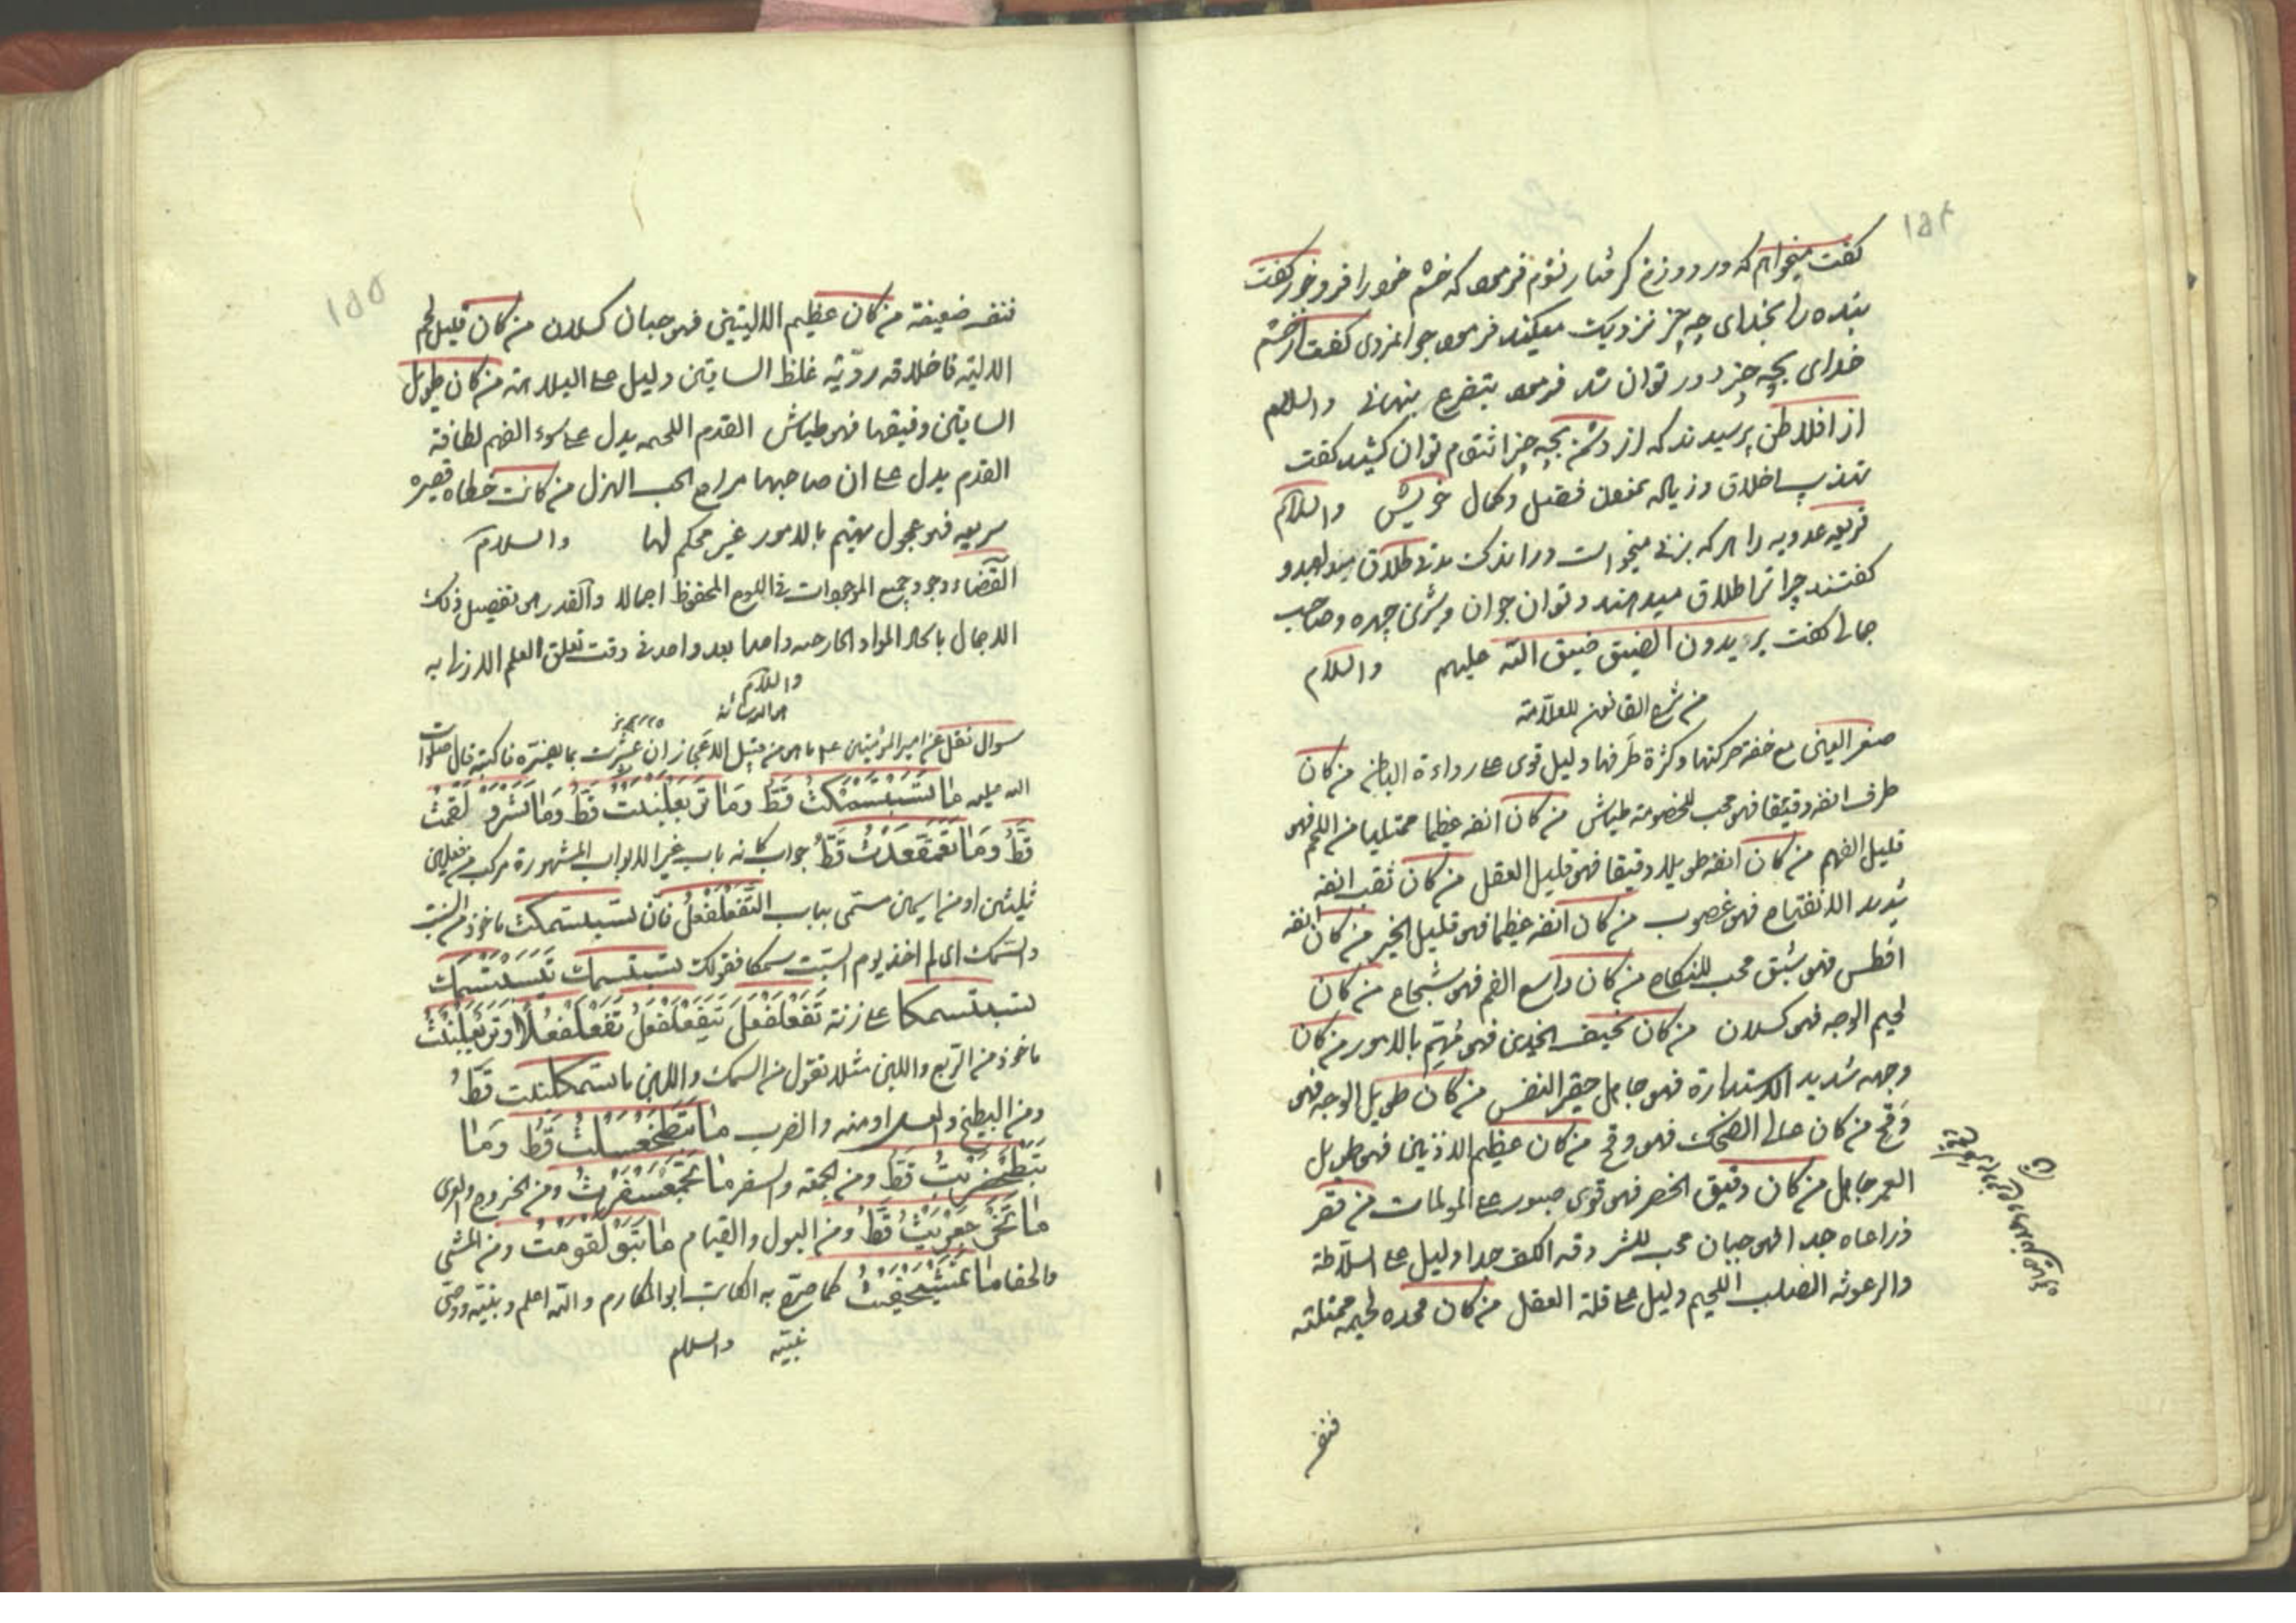 ۱۵۴
گفت میخواهم که در دوزخ گرفتار نشوم فرمود که خشم خود را فرو خور گفت
بنده را بخدای چه چیز نزدیک میکند فرمود جوانمردی گفت از خشم
خدای بچه چیز دور توان شد فرمود بتضرع پنهانی والسلام
از افلاطن پرسیدند که از دشمن بچه چیز انتقام توان کشید گفت
تهذیب اخلاق وزیاله بمنعت فضیل و کمال خویش والسلام
عدویه را هر که بزنی میخواست در اندک مدتی طلاق میداد بدو
گفتند چرا ترا طلاق میدهند و توان جوان وشری چهره وصاحب
جمالی گفت یریدون الضیق ضیق الله علیهم والسلام
من شرح القانون للعلامة
صغر العین مع خفة حرکتها وکثرة طرفها دلیل قوی علی رداءة الباطن من کان
طرف انفه دقیقا فهو محب للخصومة طیاش من کان انفه غلیظا ممتلیا من اللحم فهو
قلیل الفهم من کان انفه طویلا دقیقا فهو قلیل العقل من کان ثقب انفه
شدید الانفتاح فهو غصوب من کان انفه غلیظا فهو قلیل الخیر من کان انفه
افطس فهو شبق محب للنکاح من کان واسع الفم فهو شجاع من کان
لحیم الوجه فهو کسلان من کان نحیف الخدین فهو مهتم بالامور من کان
وجهه شدید الاستدارة فهو جاهل حقیر النفس من کان طویل الوجه فهو
وقح من کان عالی الضحک فهو وقح من کان عظیم الاذنین فهو طویل
العمر جاهل من کان دقیق الخصر فهو قوی صبور علی المولمات من قصر
ذراعاه جدا فهو جبان محب للشر دقه الکف جدا دلیل علی السلاطة
والرعونه الصلب اللحیم دلیل علی قلة العقل من کان لحیمه ممتلئة
فنف
۱۵۵
فنفـ ضعیفة من کان عظیم الالیتین فهو جبان کسلان من کان قلیل لحم
الالیة فاخلاقه ردّیة غلظ الساقین دلیل علی البلاهة من کان طویل
الساقین دقیقها فهو طیاش القدم اللحمه یدل علی سوء الفهم لطافة
القدم یدل علی ان صاحبها مراح محب الهزل من کانت خطاه قصیره
سریعه فهو عجول مهتم بالامور غیر محکم لها والسلام
القضاء وجود جمیع الموجودات فی اللوح المحفوظ اجمالا والقدر هو تفصیل ذلک
الاجمال بایجاد المواد الخارجیه واحدا بعد واحد فی وقت تعلق العلم الازلی به
والسلام
سوال نقل عن امیر المؤمنین علی ما هو من قبیل الالغاز ان عثرت بما یفسره فاکتبه قال صلوات
الله علیه مَا تَسَبْتَسَمَّکْتُ قَطُّ وَمَا تَرَبْعَلَبَّنْتُ قَطُّ وَمَا تَسَرْوَلْقَمْتُ
قَطُّ وَمَا تَعَمْقَعَدْتُ قَطُّ جواب کانه باب غیر الابواب المشهورة مرکب من فعلین
ثلیثین او من اسمین مستمی بباب التفعلفعل فان تسبتسمکت ماخوذ من السبت
والسمک ای لم اخذ یوم السبت سمکا فقولک تسبتسمک یتسبتسمک
تسبتسمکا علی زنة تَفَعْلَفَعَّلَ یَتَفَعْلَفَعَّلُ تَفَعْلَفَعُّلاً وتربعلبنت
ماخوذ من الربع واللبن مثلا تقول من السمک واللبن ما تسمکلبنت قَطُّ
ومن البطیخ والعسل او منه والضرب مَا تَبَطَّخْعَسَلْتُ قَطُّ وَمَا
تَبَطَّخْضَرَبْتُ قَطُّ ومن الجمعه والسفر ما تَجَمْعَسَفَرْتُ ومن الخروج
قَطُّ ومن البول والقیام مَا تَبَوْلَقَوَمْتُ ومن المشی
والحفا ما تَمَشَّیْحَفَیْتُ کما صرّح به الکاتب ابو المکارم والله اعلم وبنیته ووصی
نبیّه والسلام